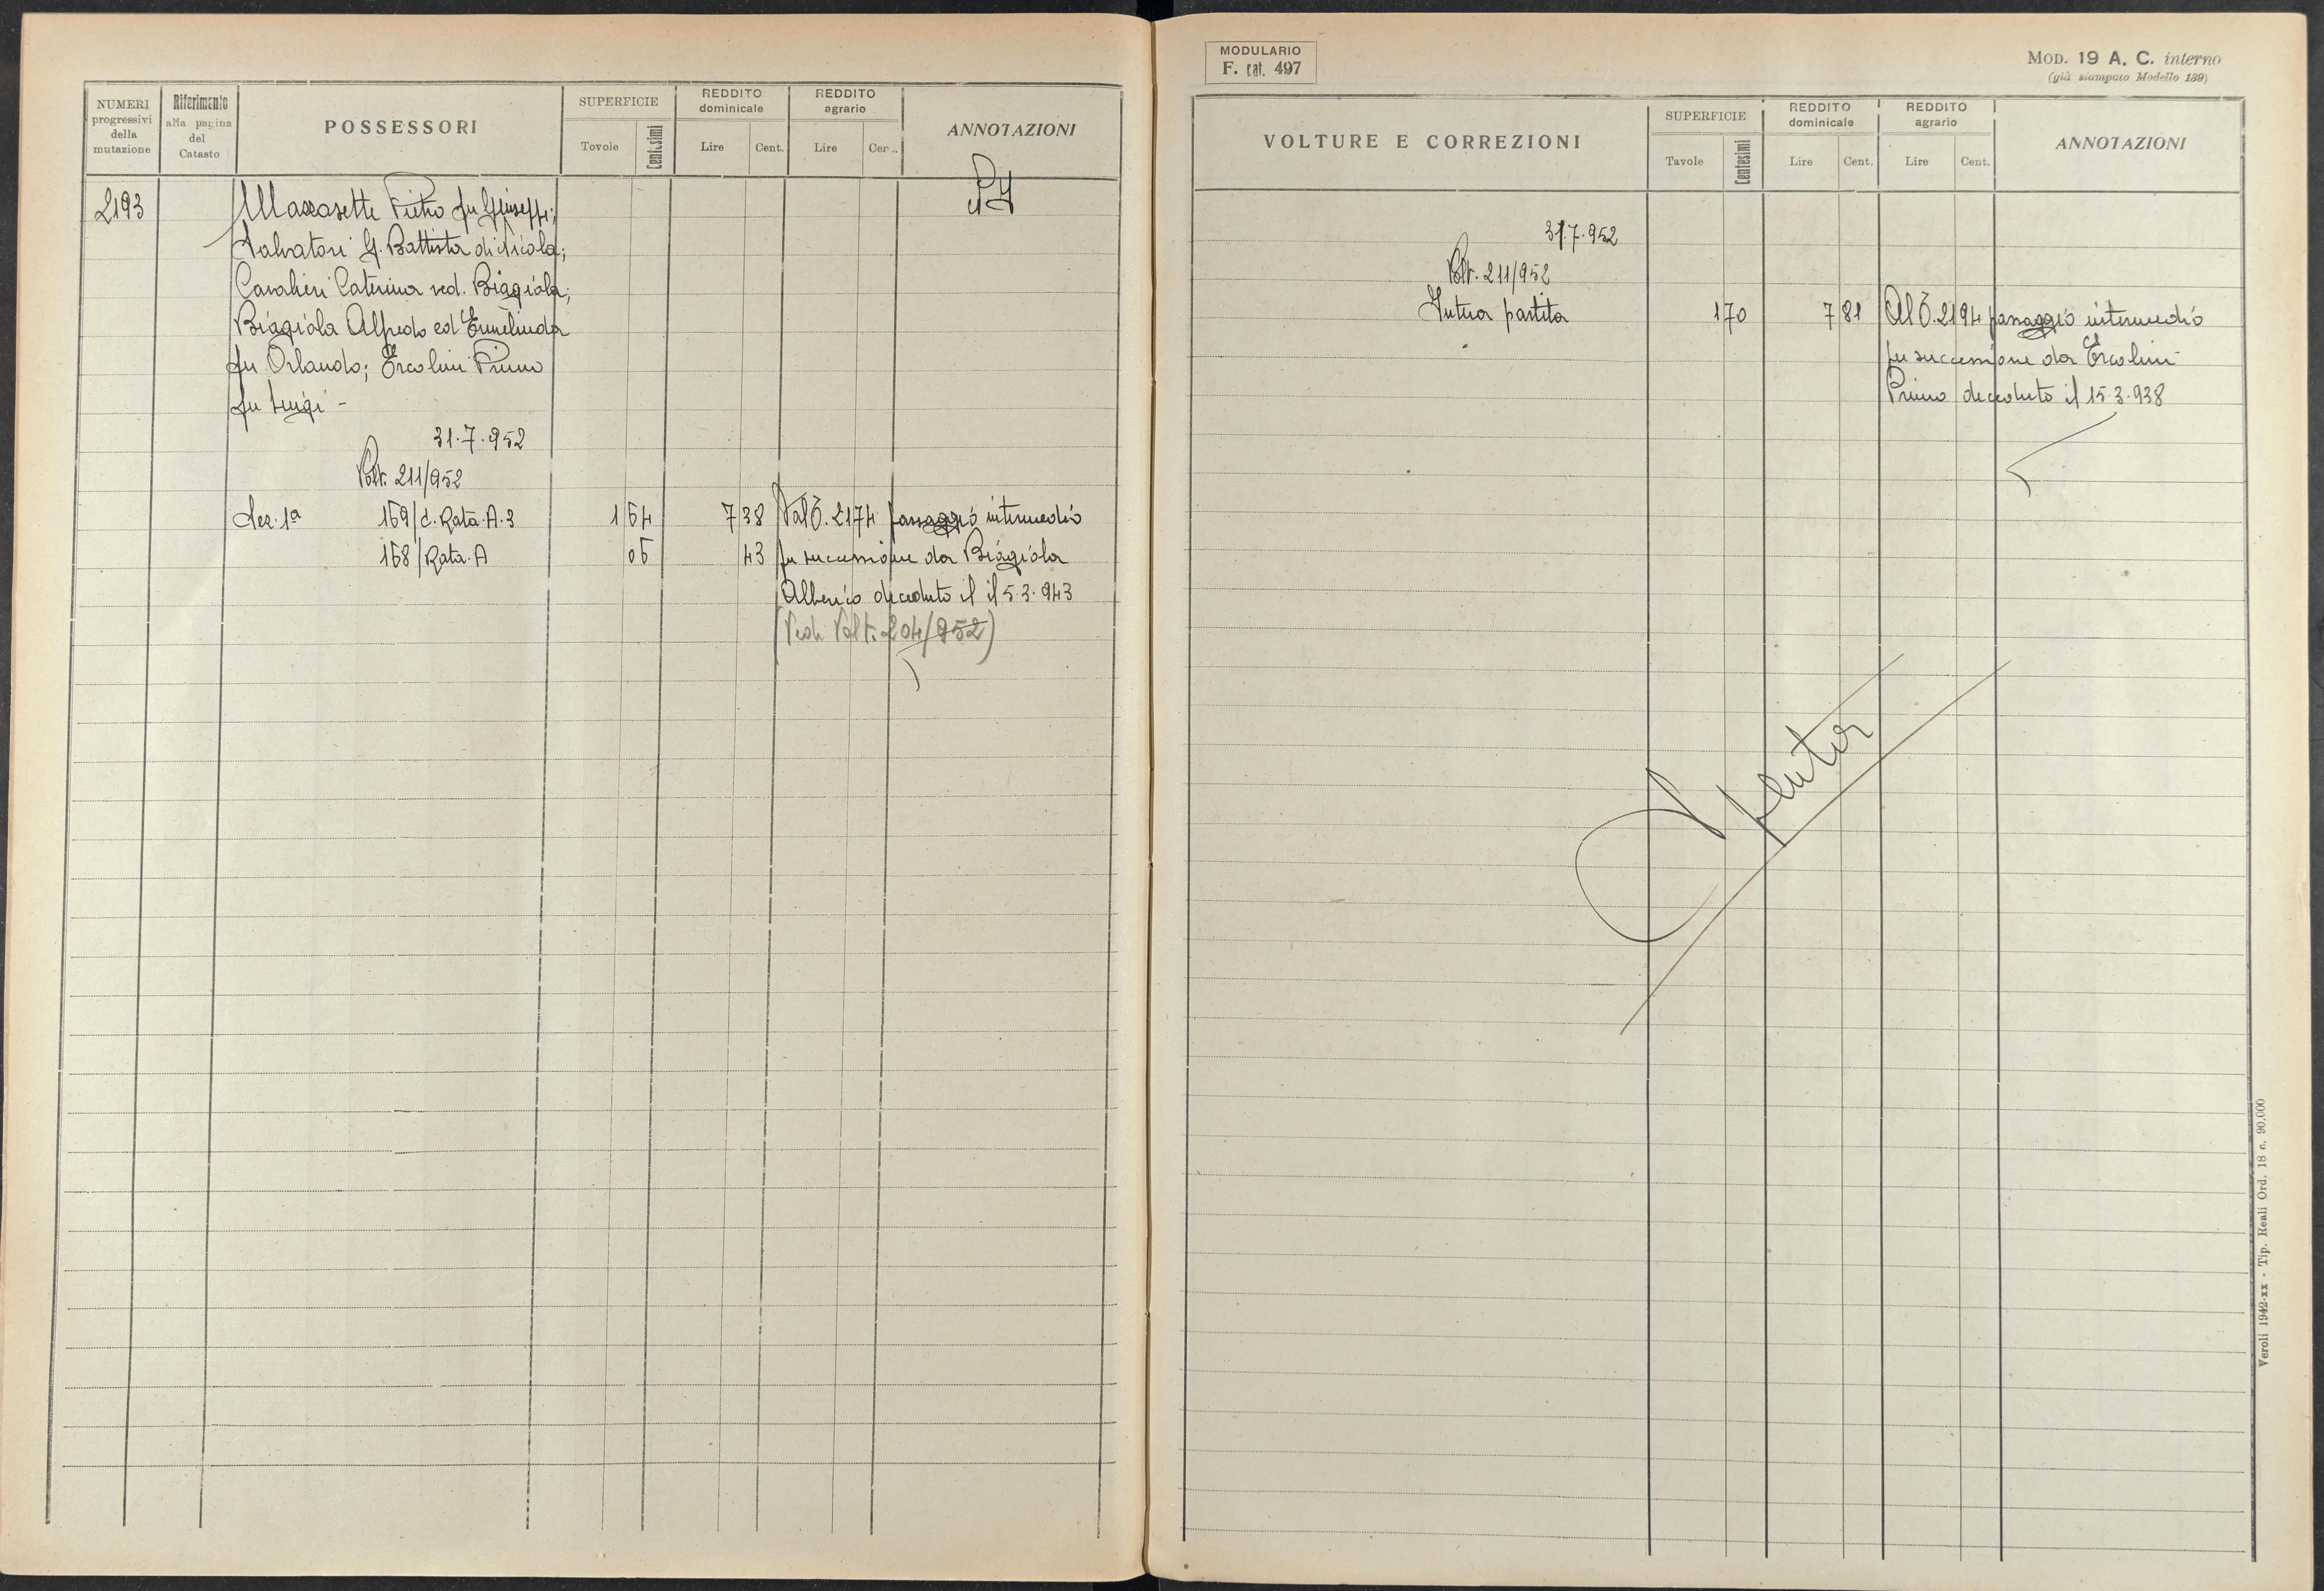 NUMERI progressivi della mutazione
Riferimento alla pagina del Catasto
POSSESSORI
SUPERFICIE
Tavole Centesimi
REDDITO dominicale
Lire Cent.
REDDITO agrario
Lire Cent.
ANNOTAZIONI
2193
Pietro fu Giuseppe;
Salvatori G. Battista di Nicola;
Cavalieri Caterina ved. Biagiola;
Biagiola Alfredo ed Ermelinda
fu Orlando; Ercolini Primo
fu Luigi -
31.7.952
Volt. 211/952
Sez. 1ª 169/c. Rata. A. 3 1 64 7 38 Dal N. 2174 passaggio intermedio
168/Rata. A 06 43 per successione da Biagiola
Alberico deceduto il il 5.3.943
(Vedi Volt. 204/952)
MODULARIO
F. cat. 497
MOD. 19 A. C. interno
(già stampato Modello 189)
VOLTURE E CORREZIONI
SUPERFICIE
Tavole Centesimi
REDDITO dominicale
Lire Cent.
REDDITO agrario
Lire Cent.
ANNOTAZIONI
31.7.952
Volt. 211/952
Intera partita 1 70 7 81 Al N. 2194 passaggio intermedio
per successione da Ercolini
Primo deceduto il 15.3.938
Spenta
Veroli 1942-xx - Tip. Reali Ord. 18 c. 90.000